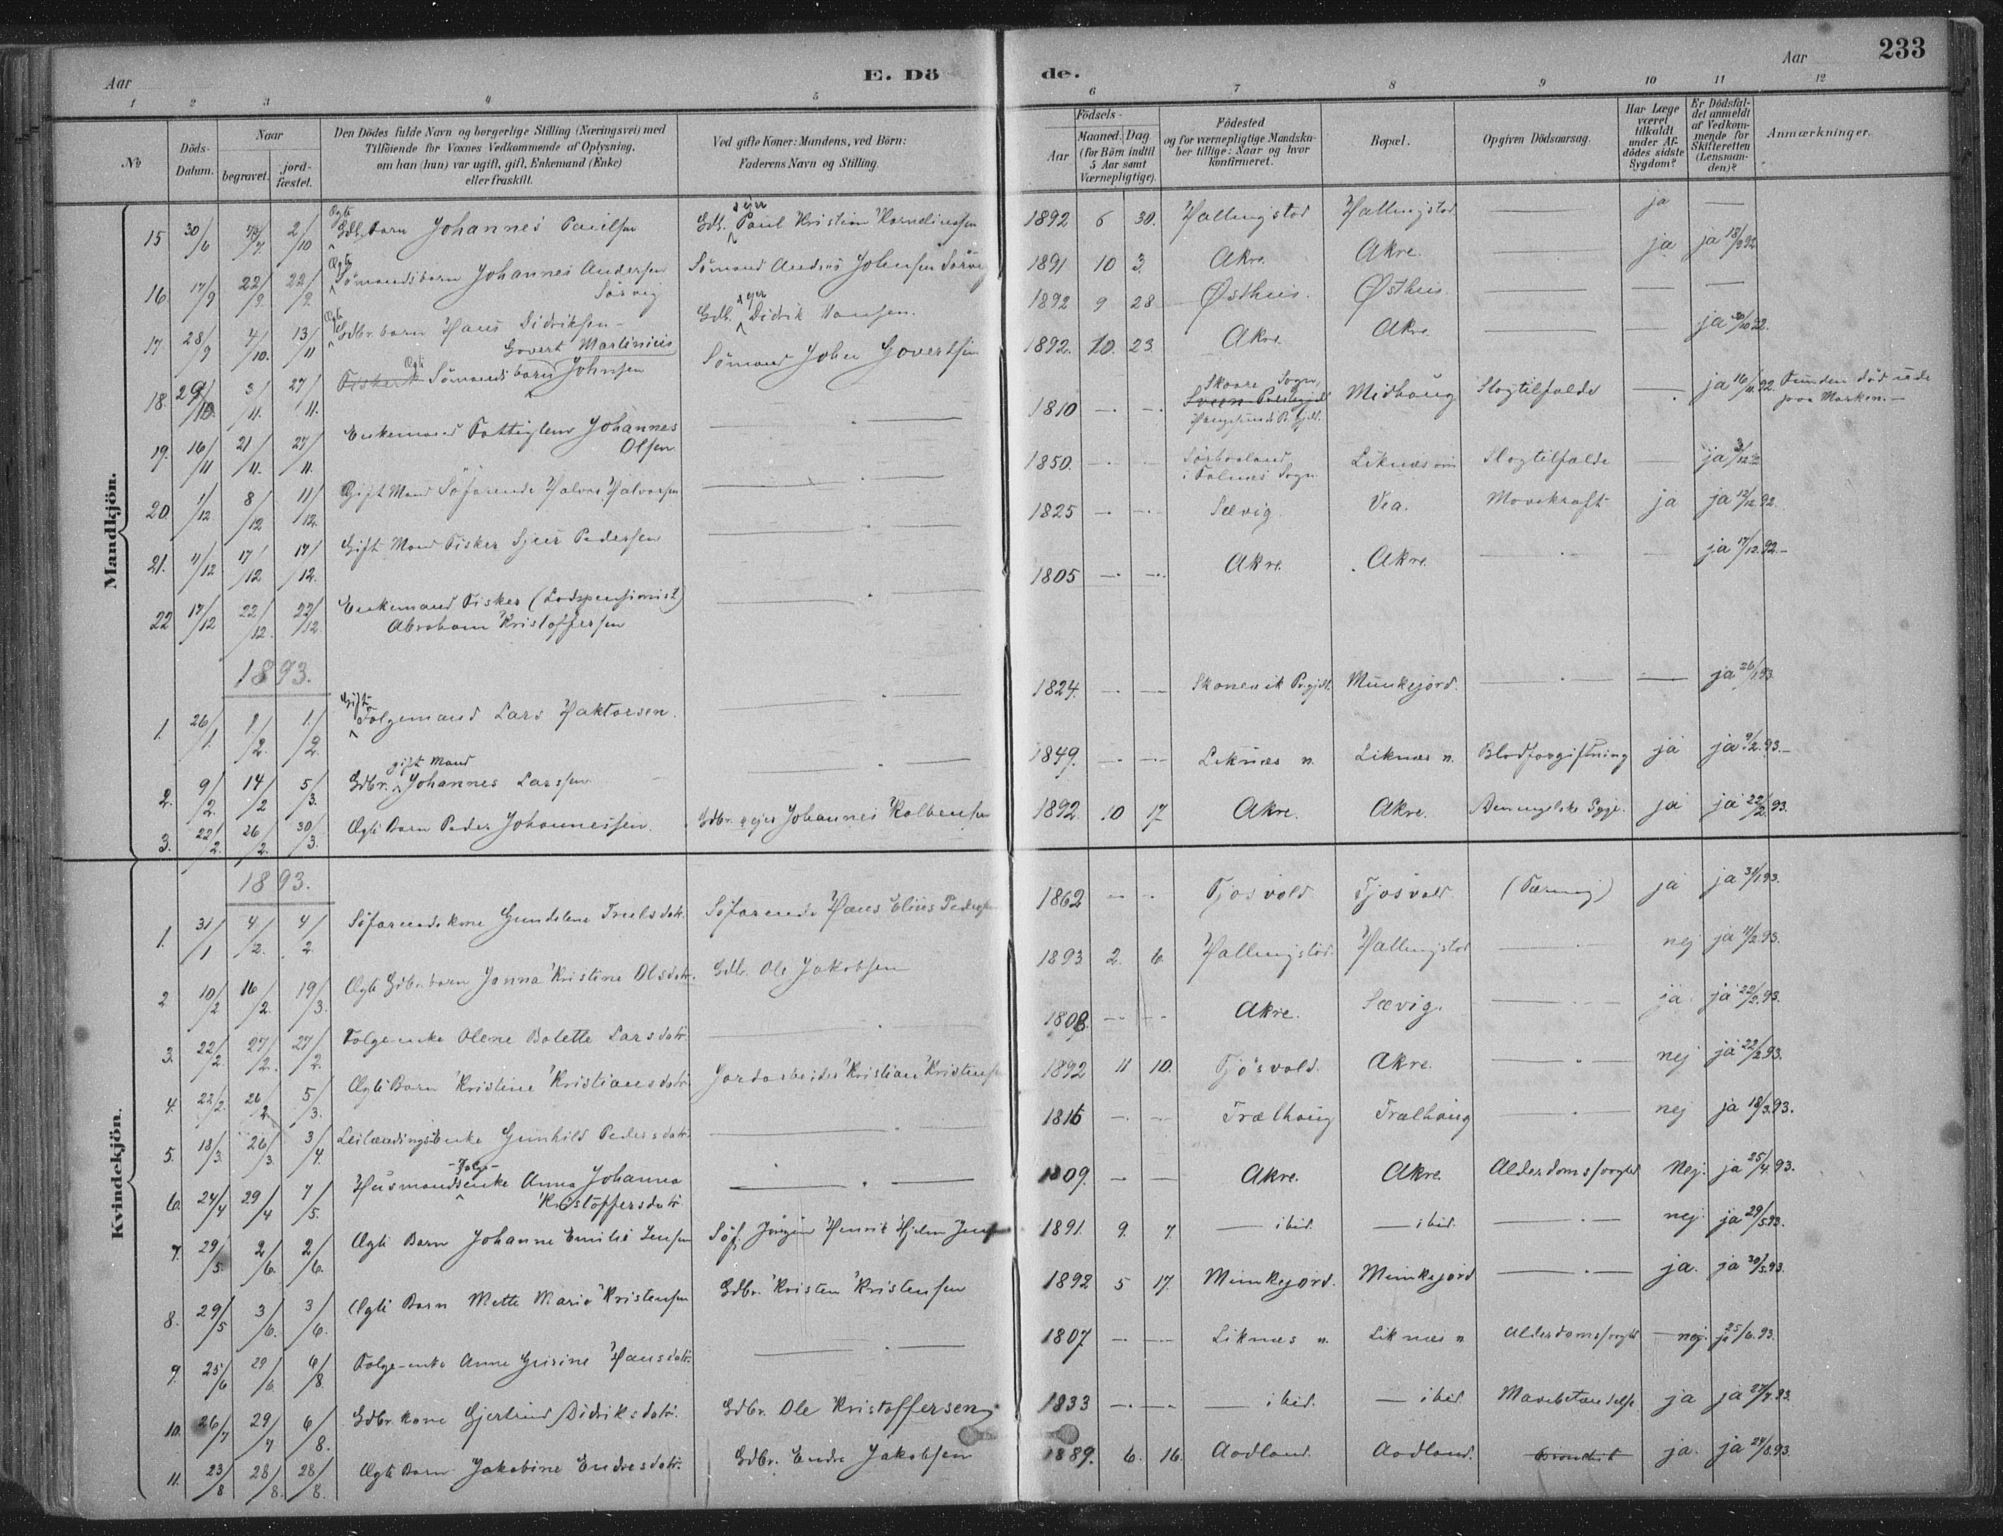 Aar
E. Dö
de.
Aar
233
1 2 3 4 5 6 7 8 9 10 11 12
No
Döds-Datum.
Naar
begravet.
jord-fæstet.
Den Dödes fulde Navn og borgerlige Stilling (Næringsvei) med Tilföiende for Voxnes Vedkommende af Oplysning, om han (hun) var ugift, gift, Enkemand (Enke) eller fraskilt.
Ved gifte Koner: Mandens, ved Börn: Faderens Navn og Stilling.
Födsels-
Aar
Maaned. Dag
(for Börn indtil 5 Aar samt Værnepligtige).
Födested og for værnepligtige Mandskaber tillige: Naar og hvor konfirmeret.
Bopæl.
Opgiven Dödsaarsag.
Har Læge været tilkaldt under Afdödes sidste Sygdom?
Er Dödsfaldet anmeldt af Vedkommende for Skifteretten (Lensmanden)?
Anmærkninger.
Mandkjön.
15 30/6 2/10 Ægte Gdb. barn Johannes Paulsen Gdb. Paul Kristian Kornelius­sen 1892 6 30. Hallingstad Hallingstad ja
16 17/9 22/9 22/9 Ægte Sømandsbarn Johannes Andersen Sørvig Sømand Andreas Johnsen Sørvig 1891 10 3. Akre. Akre. ja ja 18/9 92
17 28/9 4/10. 13/11 Ægte Gdbr. barn Hans Didriksen Gdb. Didrik Hansen. 1892 9 28 Østhus. Østhus
18. 29/10. 3/11. 27/11. Ægte Sømands barn Govert Martinius Johnsen Sømand John Govertsen 1892. 10. 23 Akre. Akre. ja
19. 16/11 21/11. 27/11. Enkemand Fattiglem Johannes Olsen 1810 Skaare Sogn, Midhaug Slagtilfælde ja 16/11.92 Funden død ude paa Marken.
20. 1/12 8/12 11/12. Gift Mand Søfarende Halvor Halvorsen 1850. i Falnes Sogn Liknæs Slagtilfælde ja
21. 11/12 17/12 17/12. Gift Mand Fisker Sjur Pedersen 1825 Sævig. Vea. Mavekræft ja ja 12/12.92.
22 17/12 22/12. 22/12. Enkemand Fisker (Lodspensionist) Abraham Kristoffersen 1805 Akre. Akre. ja 17/12.92
1893.
1. 26/1. 1/2. 1/2. Gift Folgemand Lars Haktorsen. 1824. Skonevik Prgjld. Munkejord. ja 26/1 93.
2. 9/2. 14/2 5/3. Gdbr. gift Mand Johannes Larssen 1849. Liknæs n. Liknæs n. Blodforgiftning ja ja 9/2.93.
3. 22/2. 26/2. 30/3. Ægte Barn Peder Johannessen. Gdbr. ejer Johannes Kolbensen 1892. 10 17. Akre. Akre. ja ja 22/2 93.
Kvindekjön.
1893.
1. 31/1 4/2. 4/2. Søfarendekone Gundelene Truelsdatr. Søfarende Hans Elius Pedersen 1862 Tjosvold Tjosvold (Tæring) ja ja 31/1 93.
2 10/2 16/2. 19/3. Ægte Gdbr. barn Janna Kristine Olsdatr. Gdb. Ole Jakobsen 1893 2. 6. Hallingstad. Hallingstad nej ja 11/2.93.
3. 22/2. 27/2. 27/2. Folge-enke Olene Bolette Larsdatr. 1808. Akre. Sævig. ja. ja 22/2.93.
4. 22/2. 26/2. 5/3. Ægte Barn Kristine Kristiansdatr. Jordarbeider Kristian Kristensen 1892 11 10. Tjøsvold. Akre. nej ja 22/2.93.
5. 18/3. 26/3. 3/4. Leilændingsenke Gunhild Pedersdatr. 1816 Trælhaug Trælhaug nej ja 18/3.93.
6. 24/4 29/4 7/5. Husmands-Folge-enke Anna Johanna Kristoffersdatr. 1809. Akre. Akre. Alderdomssvaghed Nej. ja 25/4.93.
7. 29/5. 2/6. 2/6. Ægte Barn Johanne Emilie Jensen Søf. Jørgen Henrik Hjelm Jensen 1891. 9. 7. ibid. ibid. nej ja 29/5.93.
8. 29/5 3/6. 3/6. Ægte Barn Mette Marie Kristensen Gdbr. Kristen Kristensen 1892 5 17. Munkejord. Munkejord ja. ja 30/5.93.
9. 25/6 29/6. 6/8. Folge-enke Anne Gurine Hansdatr. 1807. Liknæs n. Liknæs n Alderdomssvaghed nej. ja 25/6.93.
10. 26/7 29/7 6/8. Gdbr. kone Gjertrud Didriksdatr. Gdbr. Ole Kristoffersen 1833 ibid. ibid. Mavebetændelse ja ja 27/7.93.
11. 23/8 28/8. 28/8. Ægte Barn Jakobine Endresdatr. Gdbr. Endre Jakobsen 1889. 6. 16. Aadland. Aadland. ja. ja 24/8.93.